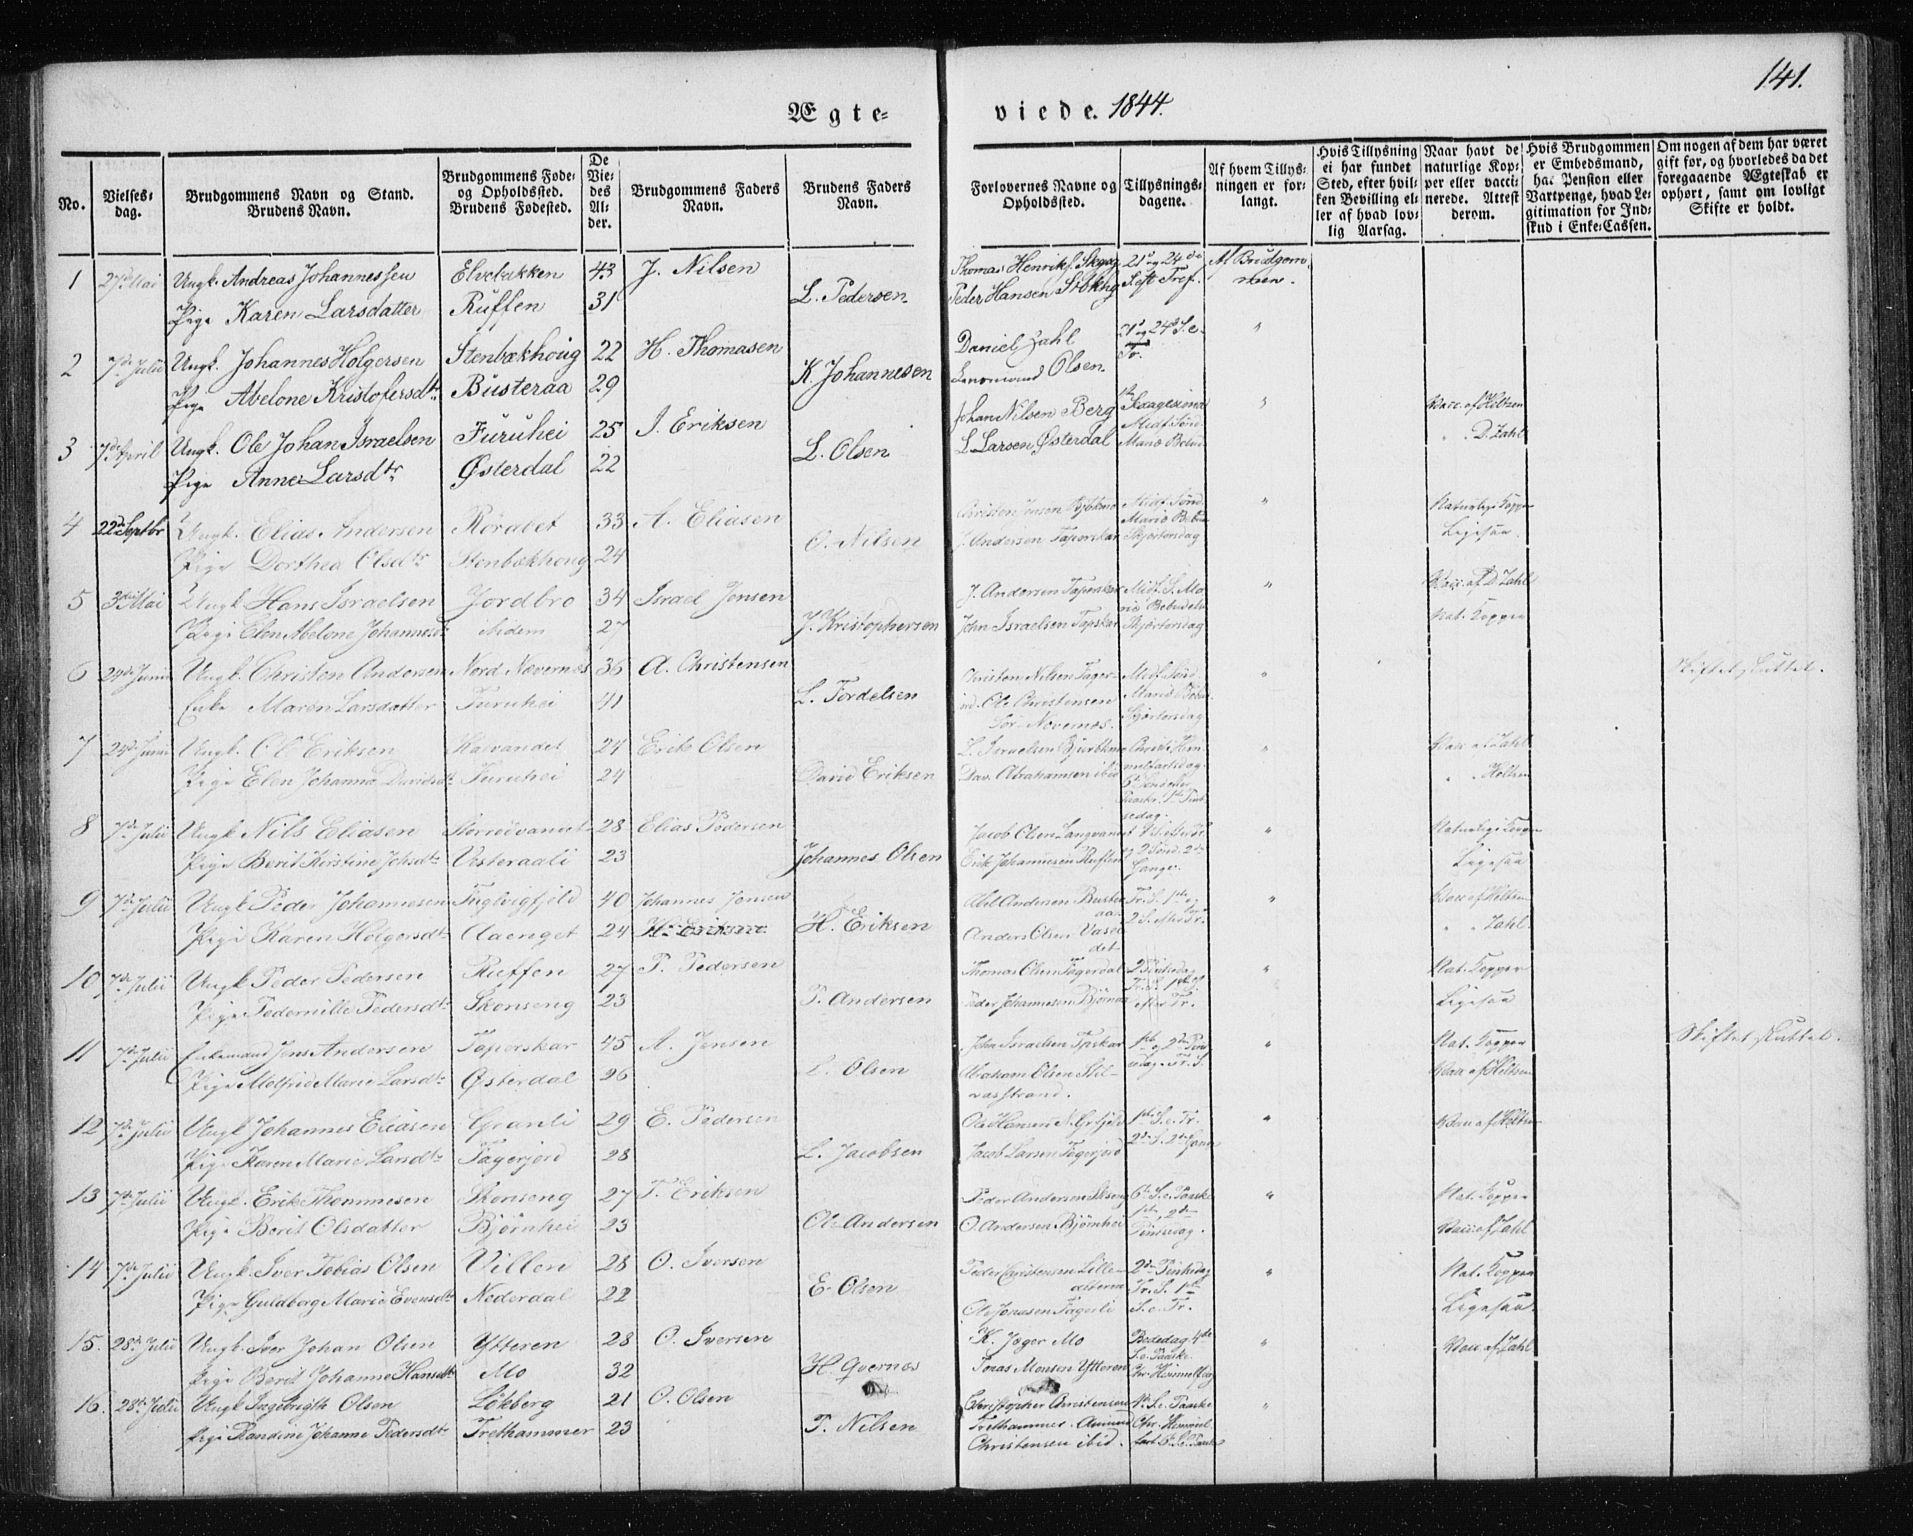 141.
Ægte= viede. 1844.
No.
Vielses=dag.
Brudgommens Navn og Stand. Brudens Navn.
Brudgommens Føde= og Opholdssted. Brudens Fødested.
De Viedes Alder.
Brudgommens Faders Navn.
Brudens Faders Navn.
Forlovernes Navne og Opholdssted.
Tillysnings=dagene.
Af hvem Tillysningen er forlangt.
Hvis Tillysning ei har fundet Sted, efter hvilken Bevilling eller af hvad lovlig Aarsag.
Naar havt de naturlige Kopper eller vaccinerede. Attest derom.
Hvis Brudgommen er Embedsmand, har Pension eller Vartpenge, hvad Legitimation for Indskud i Enke=Cassen.
Om nogen af dem har været gift før, og hvorledes da det foregaaende Ægteskab er ophørt, samt om lovligt Skifte er holdt.
1 27de Mai Ungk. Andreas Johannessen Elvebakken 43 J. Nilsen Thomas Henriks. 21de og 24de Af Brudgommen.
Pige Karen Larsdatter Ruffen 31 L. Pedersen Peder Hansen
2 7de Julii Ungk. Johannes Holgersen Stenbækhoug 22 H. Thomasen Daniel Zahl 21de og 24de S. e. Tr. "
Pige Abelone Kristofersdtr Busteraa 29 K. Johannesen Lensmand Olsen
3 7de April Ungk. Ole Johan Israelsen Furuhei 25 I. Eriksen Johan Nilsen Berg Midf. Sønd. " Vacc. af Holtzen
Pige Anne Larsdtr Østerdal 22 L. Olsen L Larsen Østerdal Mariæ Bebud. " D. Zahl
4 22de Septbr Ungk. Elias Andersen Röravet 33 A. Eliasen Christen Jensen Midf. Sønd. Mariæ Beb. " Naturlige Kopper
Pige Dorthea Olsdtr Stenbækhoug 24 O. Nilsen J. Andersen Taperskar Skjertorsdag Ligesaa.
5 3die Mai Ungk. Hans Israelsen Jordbro 34 Israel Jensen J. Andersen Taperskar Midf. S. Mariæ Bebudelse " Vacc. af D Zahl
Pige Elen Abelone Johannesdtr ibidem 27 J. Kristophersen John Israelsen Tapskar Skjertorsdag Nat. Kopper
6 24de Junii Ungk. Christen Andersen Nord Nævernæs 36 A. Christensen Christen Nilsen Midf. Sønd. " Skiftet sluttet.
Enke Maren Larsdatter Furuhei 41 L. Tordelsen Ol. Christensen Sør-Nævernæs. Mariæ Bebud. Skjertorsdag
7 24de Junii Ungk. Ol Eriksen Kalvandet 24 Erik Olsen L. Israelsen Christi Himmelfartsdag. " Vacc. af Zahl
Pige Elen Johanna Davidsdtr Furuhei 24 David Eriksen Dav. Abrahamsen ibid 6te Sønd. efter Paaske. 1ste Pintsedag. " " Holtzen
8 7de Julii Ungk Nils Eliasen Storrødvandet 28 Elias Pedersen Jacob Olsen Langvandet " Naturlige Kopper
Pige Berit Kirstine Johsdtr Vesteraali 23 Johannes Olsen Erik Johannesen Ruffen 2 Sønd. 2de Gange. Ligesaa
9 7de Julii Ungk Peder Johannesen Fuglvigfjeld 40 Johannes Jensen Abel Andersen Busteraa Tr. S. 1ste og 2 S. efter Tr. " Vacc. af Holtzen
Pige Karen Holgersdtr Aaenget 24 H. Eriksen H. Eriksen Anders Olsen " " Zahl.
10 7de Julii Ungk Peder Pedersen Ruffen 27 P. Pedersen Thomas Olsen Fagerdal 2 Pintsedag " Nat. Kopper
Pige Pedernille Pedersdtr Skonseng 23 P. Andersen Peder Johannesen Tr. S. 1ste S. efter Tr. Ligesaa
11 7de Julii Enkemand Jens Andersen Taperskar 45 A. Jensen John Israelsen Tpskar 1ste og 2den Pintsedag. Tr. S. " Nat. Kopper Skiftet sluttet.
Pige Molfrid Marie Larsdtr Østerdal 26 L. Olsen Abraham Olsen Stilvasstrand. Vacc af Holtzen
12 7de Julii Ungk Johannes Eliasen Granli 29 E. Pedersen Ole Hansen 1ste S. e. Tr. " Vacc af Holtzen
Pige Karen Marie Larsdtr Fagerjord 28 L. Jacobsen Jacob Larsen Fagerjord 2de S. 2de Gange
13 7de Julii Ungk. Erik Thommesen Skonseng 27 T. Eriksen Peder Andersen Skseng 6te S. e. Paaske " Nat. Kopper
Pige Berit Olsdatter Bjørnhei 23 Ole Andersen O. Andersen Bjørnhei 1ste, 2den Pintsedag. Vacc. af Zahl
14 7de Julii Ungk. Iver Tobias Olsen Villen 28 O. Iversen Peder Christensen Lille 2den Pintsedag " Nat. Kopper
Pige Guldborg Marie Evensdtr Nederdal 22 E. Olsen Ole Jonasen Fagerli Tr. S. 1ste S. e. Tr. Ligesaa
15. 28de Julii Ungk. Iver Johan Olsen Ytteren 28 O. Iversen K. Jæger Mo Bededag 4de S. e. Paaske " Vacc. af Zahl
Pige Berit Johanne Hansdtr Mo 32 H. Qvernæs Jonas Monsen Ytteren Chr Himmelfdag
16. 28de Julii Ungk Ingebrigth Olsen Lökberg 21 O. Olsen Christopher Christensen 4de S. e. Paaske "
Pige Randine Johanne Pedersdtr Trethammer 23 P. Nilsen Trethammer. Chr. Himmel
Christensen ibid. fart 6te S. e. Paaske